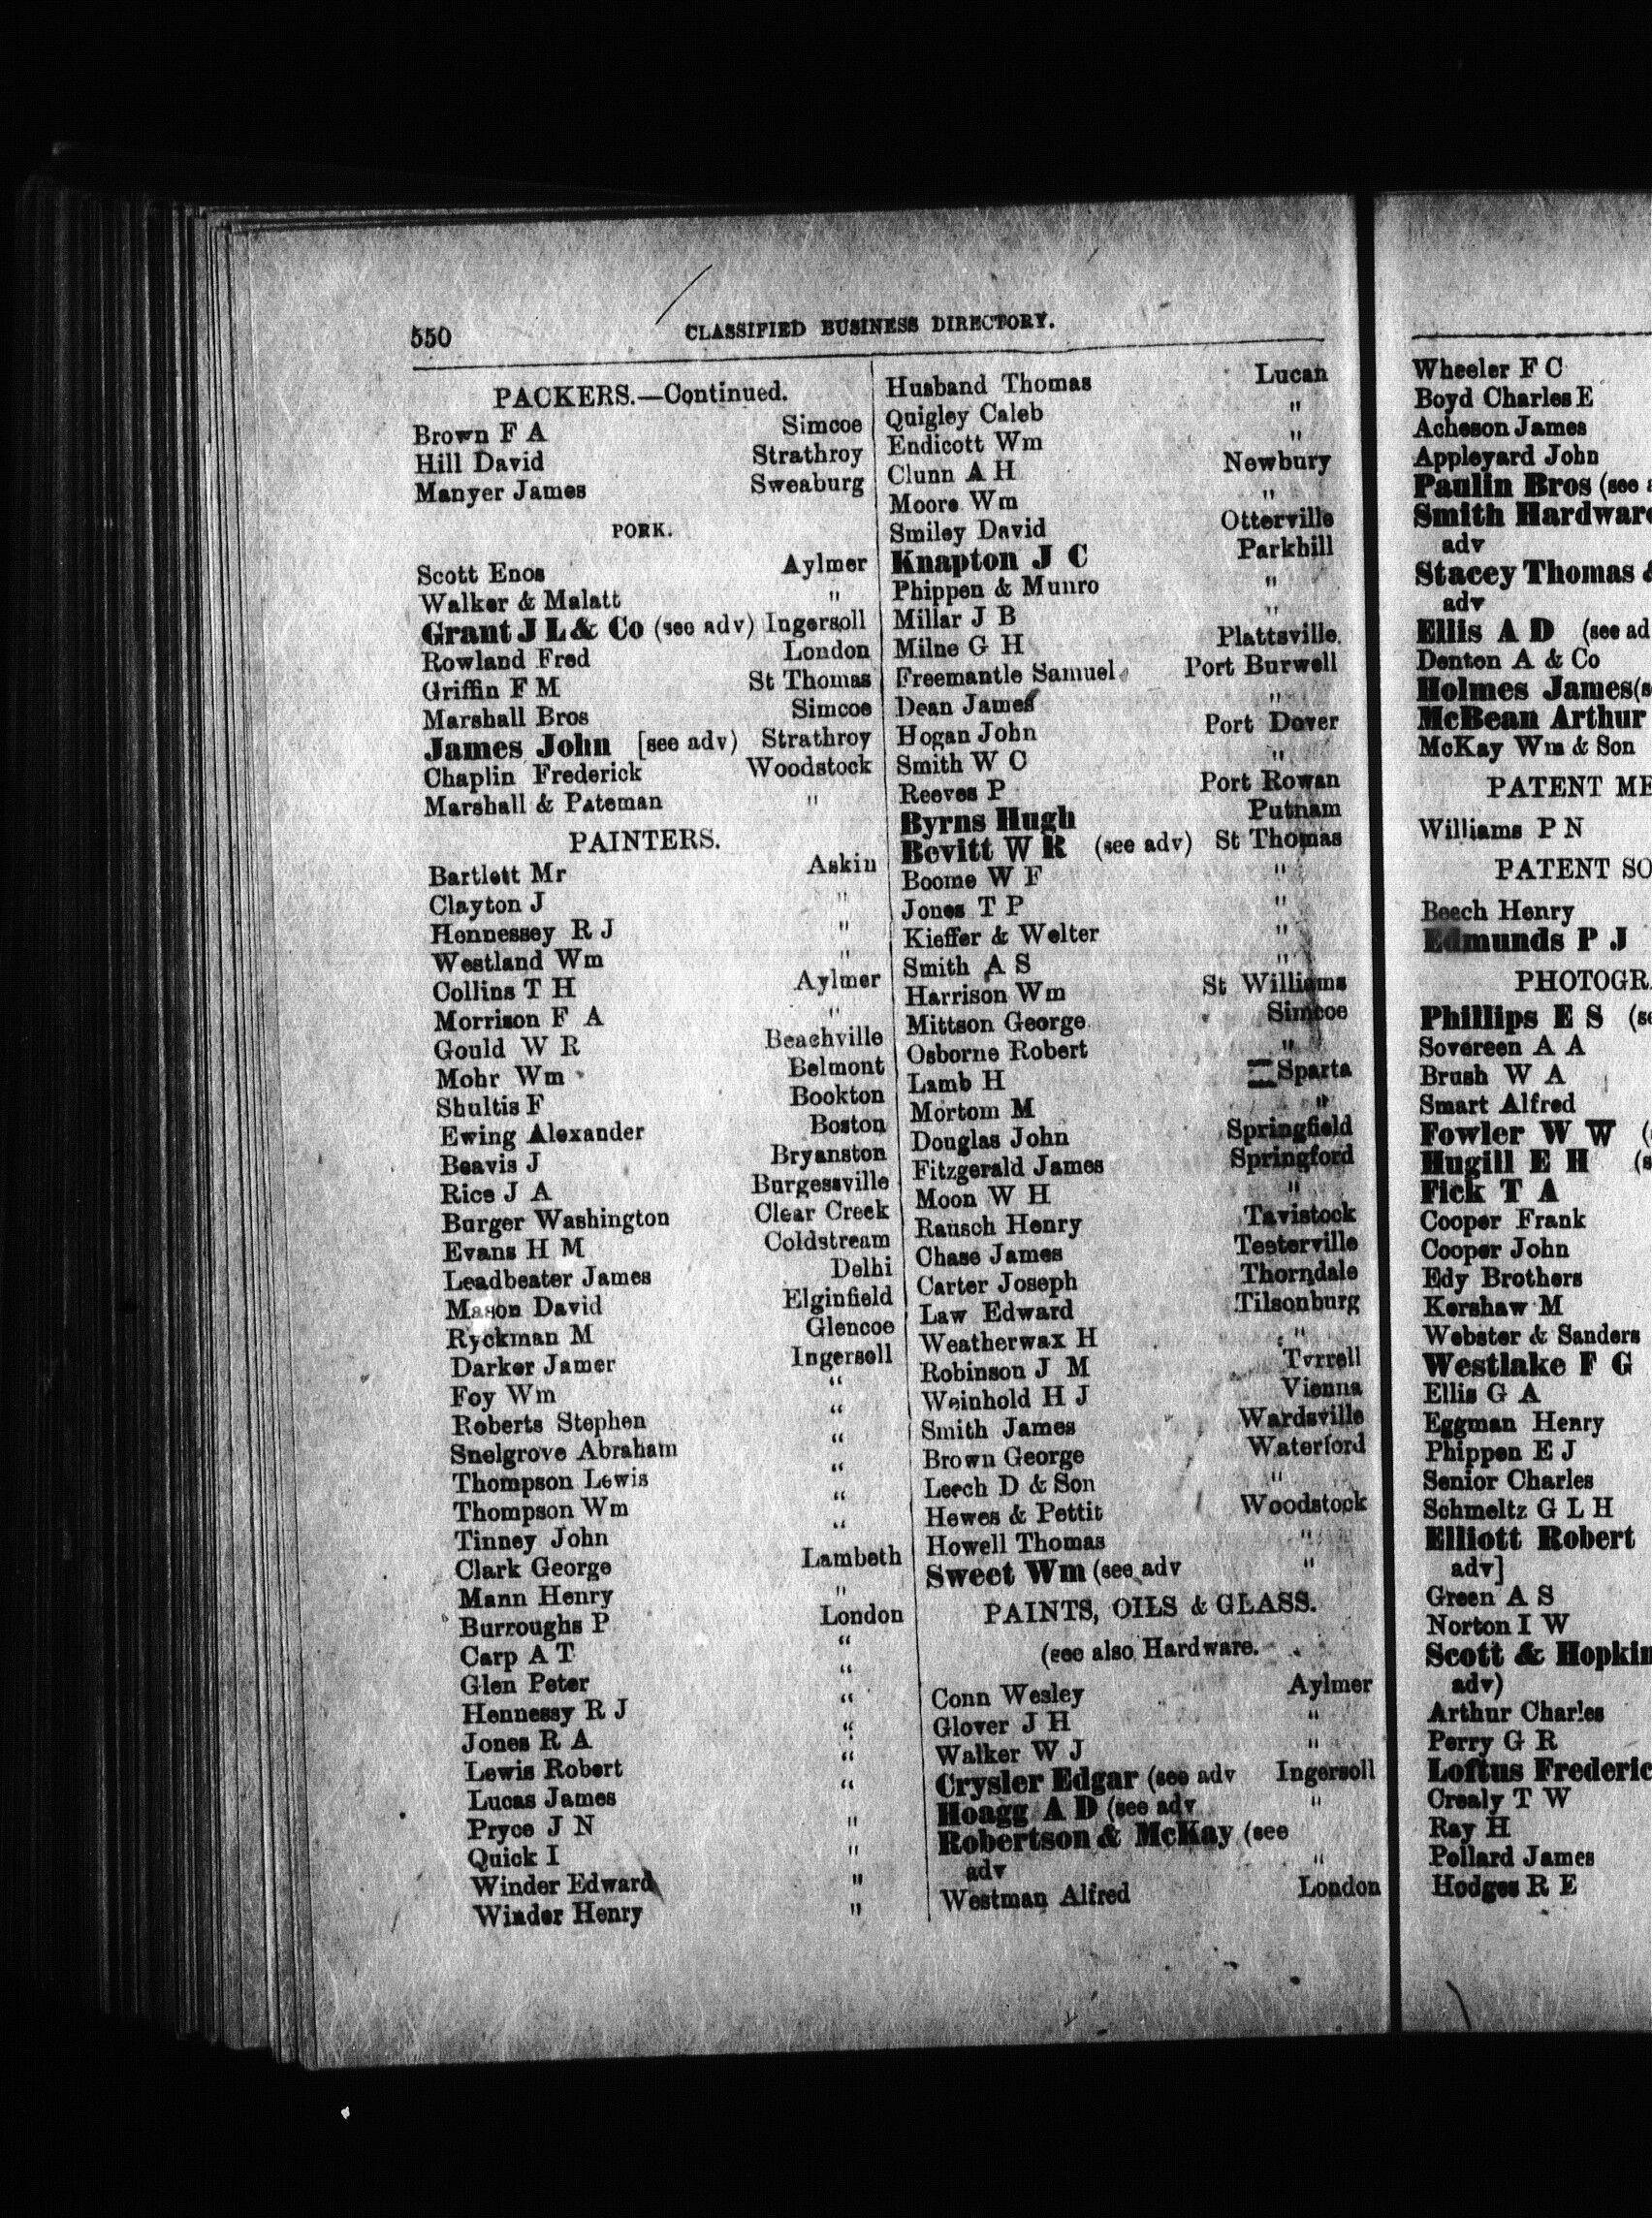 550
CLASSIFIED BUSINESS DIRECTORY.
PACKERS.—Continued.
Brown F A Simcoe
Hill David Strathroy
Manyer James Sweaburg
PORK.
Scott Enos Aylmer
Walker & Malatt "
Grant J L & Co (see adv) Ingersoll
Rowland Fred London
Griffin F M St Thomas
Marshall Bros Simcoe
James John [see adv) Strathroy
Chaplin Frederick Woodstock
Marshall & Pateman "
PAINTERS.
Bartlett Mr Askin
Clayton J "
Hennessey R J "
Westland Wm "
Collins T H Aylmer
Morrison F A "
Gould W R Beachville
Mohr Wm Belmont
Shultis F Bookton
Ewing Alexander Boston
Beavis J Bryanston
Rice J A Burgessville
Burger Washington Clear Creek
Evans H M Coldstream
Leadbeater James Delhi
Mason David Elginfield
Ryckman M Glencoe
Darker Jamer Ingersoll
Foy Wm "
Roberts Stephen "
Snelgrove Abraham "
Thompson Lewis "
Thompson Wm "
Tinney John "
Clark George Lambeth
Mann Henry "
Burroughs P London
Carp A T "
Glen Peter "
Hennessy R J "
Jones R A "
Lewis Robert "
Lucas James "
Pryce J N "
Quick I "
Winder Edward "
Winder Henry "
Husband Thomas Lucan
Quigley Caleb "
Endicott Wm "
Clunn A H Newbury
Moore Wm "
Smiley David Otterville
Knapton J C Parkhill
Phippen & Munro "
Millar J B "
Milne G H Plattsville.
Freemantle Samuel Port Burwell
Dean James "
Hogan John Port Dover
Smith W C "
Reeves P Port Rowan
Byrns Hugh Putnam
Bevitt W R (see adv) St Thomas
Boome W F "
Jones T P "
Kieffer & Welter "
Smith A S "
Harrison Wm St Williams
Mittson George Simcoe
Osborne Robert "
Lamb H Sparta
Mortom M "
Douglas John Springfield
Fitzgerald James Springford
Moon W H "
Rausch Henry Tavistock
Chase James Teeterville
Carter Joseph Thorndale
Law Edward Tilsonburg
Weatherwax H "
Robinson J M Tyrrell
Weinhold H J Vienna
Smith James Wardsville
Brown George Waterford
Leech D & Son "
Hewes & Pettit Woodstock
Howell Thomas "
Sweet Wm (see adv "
PAINTS, OILS & GLASS.
(see also Hardware.
Conn Wesley Aylmer
Glover J H "
Walker W J "
Crysler Edgar (see adv Ingersoll
Hoagg A D (see adv "
Robertson & McKay (see
adv "
Westman Alfred London
Wheeler F C
Boyd Charles E
Acheson James
Appleyard John
Paulin Bros (see
Smith Hardware
adv
Stacey Thomas &
adv
Ellis A D (see ad
Denton A & Co
Holmes James (s
McBean Arthur
McKay Wm & Son
PATENT ME
Williams P N
PATENT SO
Beech Henry
Edmunds P J
PHOTOGR
Phillips E S (se
Sovereen A A
Brush W A
Smart Alfred
Fowler W W (
Hugill E H (s
Fick T A
Cooper Frank
Cooper John
Edy Brothers
Kershaw M
Webster & Sanders
Westlake F G
Ellis G A
Eggman Henry
Phippen E J
Senior Charles
Schmeltz G L H
Elliott Robert
adv]
Green A S
Norton I W
Scott & Hopkin
adv)
Arthur Charles
Perry G R
Loftus Frederic
Crealy T W
Ray H
Pollard James
Hodges R E